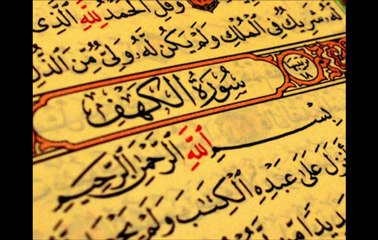 وَقُلِ ٱلْحَمْدُ لِلَّهِ ٱلَّذِى
لَّهُۥ شَرِيكٌ فِى ٱلْمُلْكِ وَلَمْ يَكُن لَّهُۥ وَلِىٌّ مِّنَ ٱلذُّلِّ
سُورَةُ الكَهْفِ
بِسْمِ ٱللَّهِ ٱلرَّحْمَٰنِ ٱلرَّحِيمِ
أَنزَلَ عَلَىٰ عَبْدِهِ ٱلْكِتَٰبَ وَلَمْ